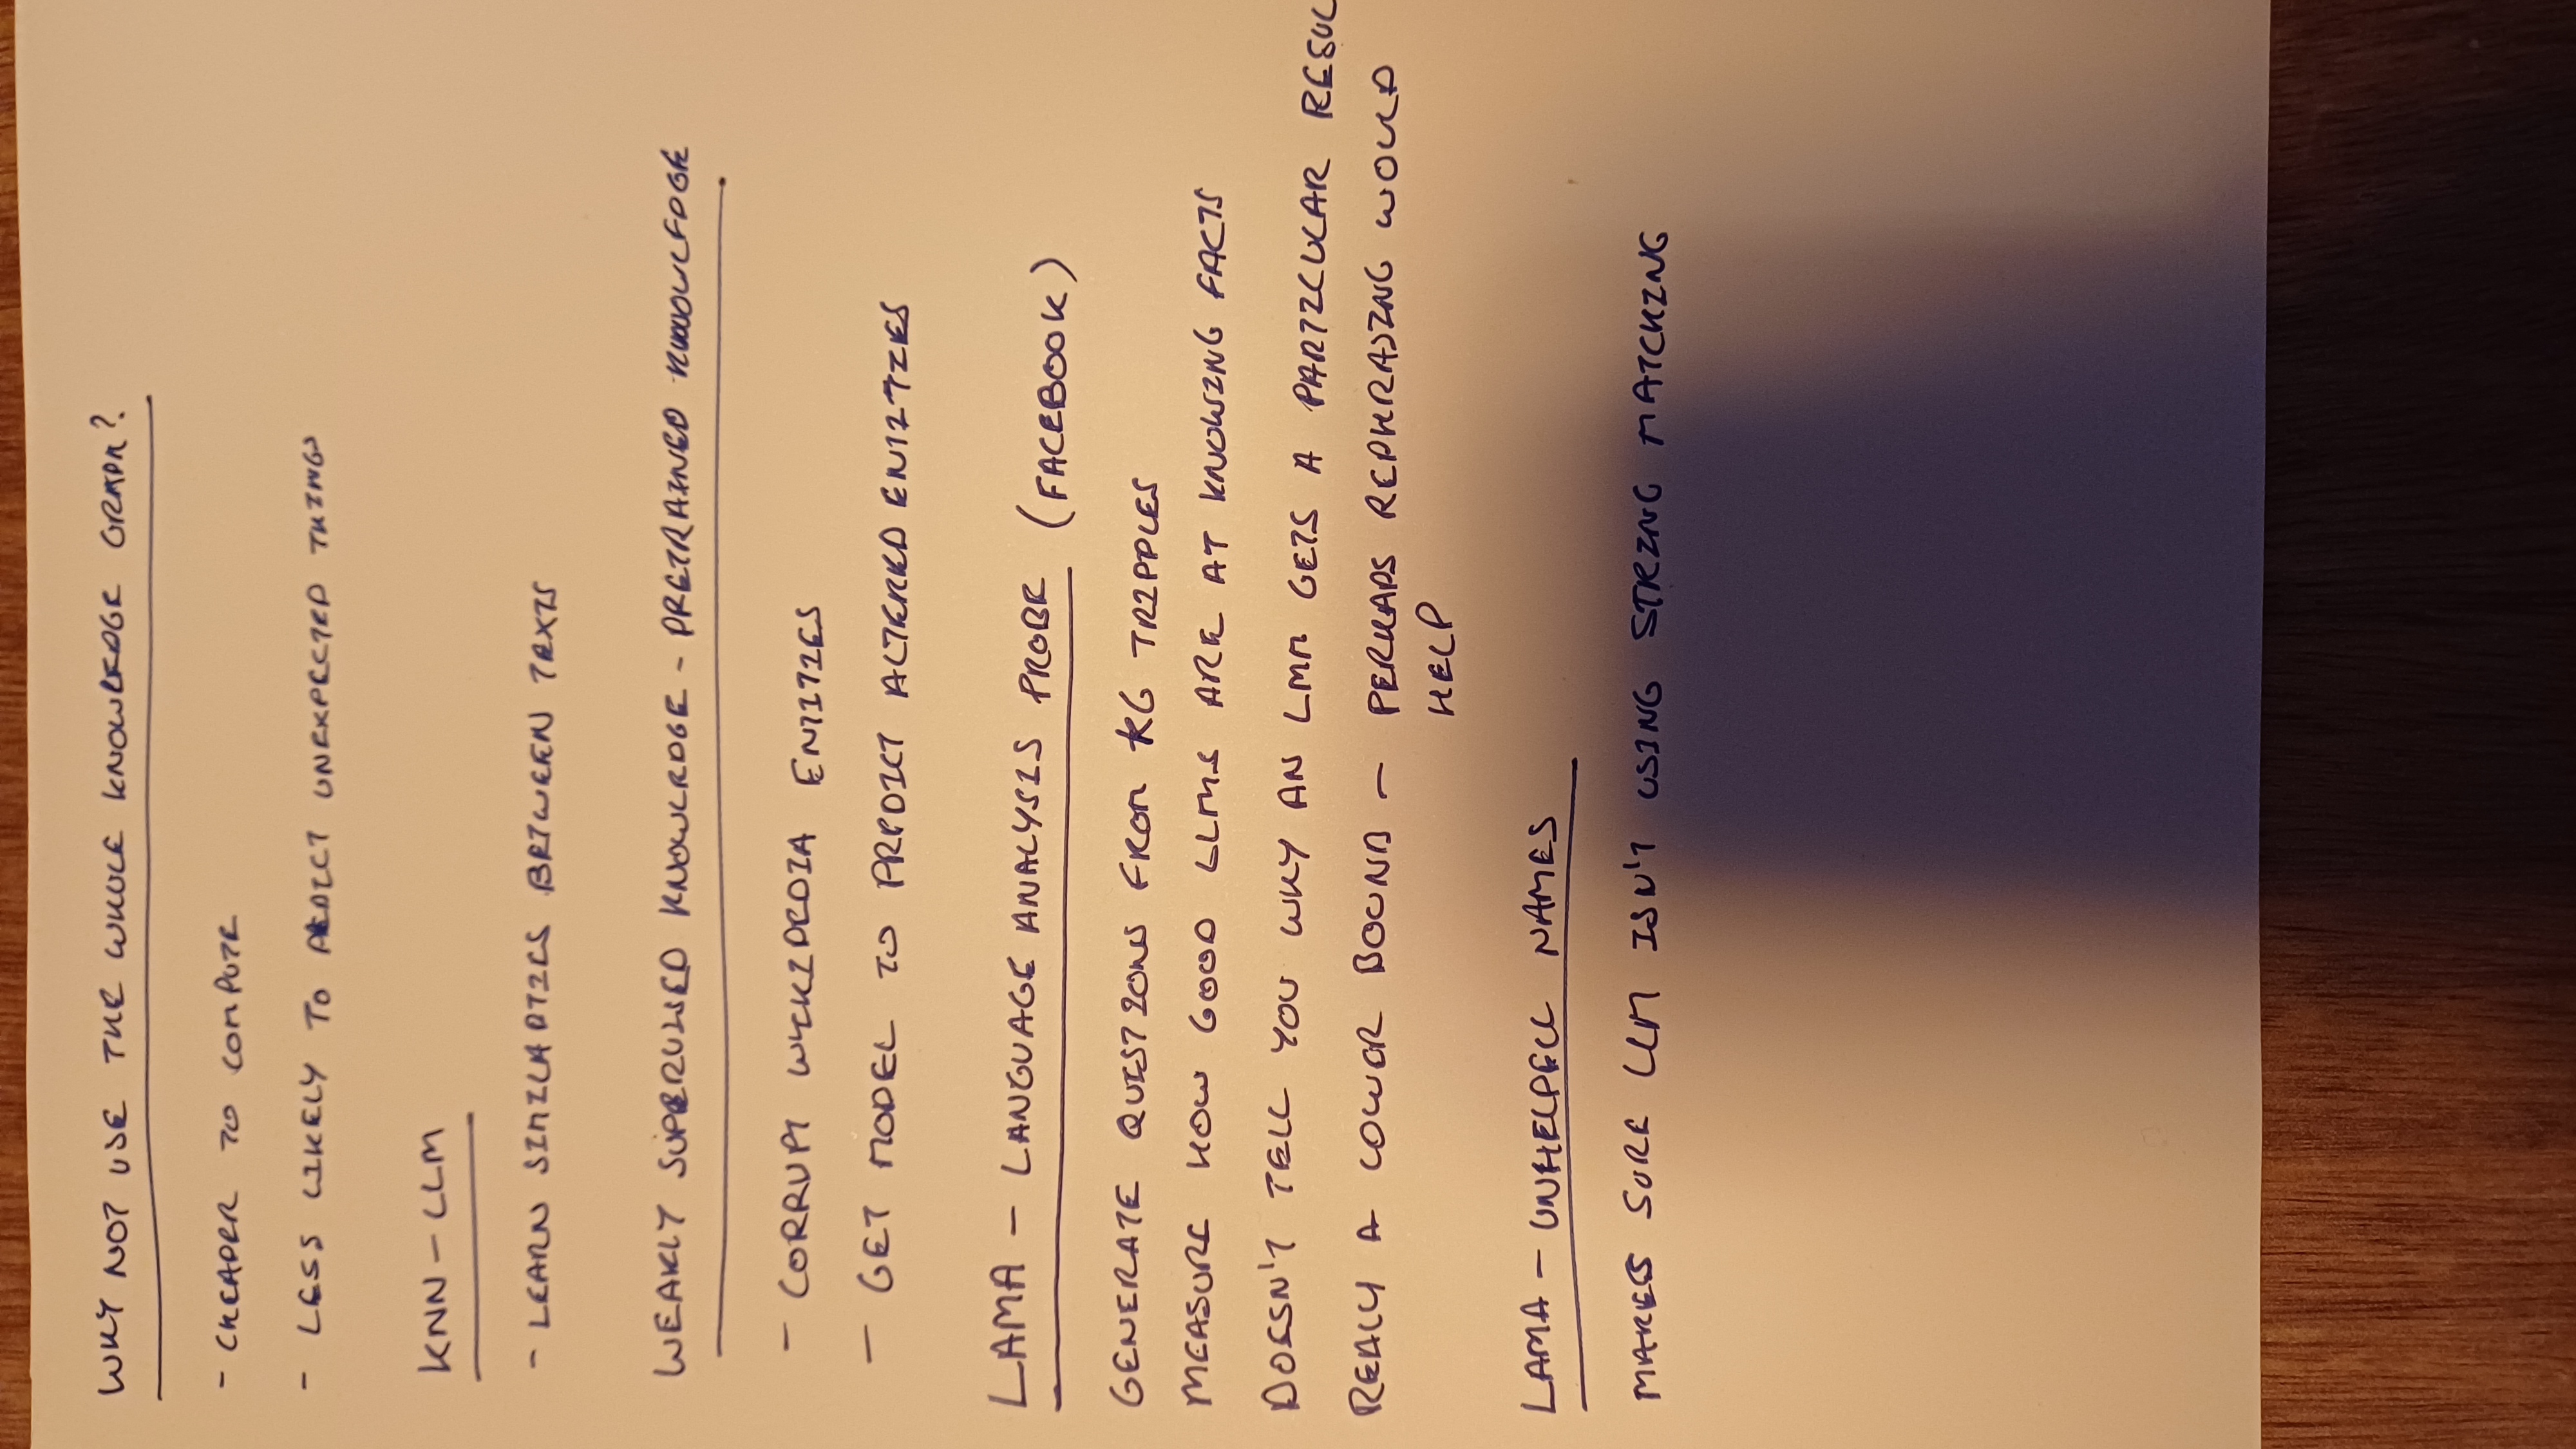 WHY NOT USE THE WHOLE KNOWLEDGE GRAPH?
- CHEAPER TO COMPUTE
- LESS LIKELY TO PREDICT UNEXPECTED THINGS
KNN - LLM
- LEARN SIMILARITIES BETWEEN TEXTS
WEAKLY SUPERVISED KNOWLEDGE - PRETRAINED KNOWLEDGE
- CORRUPT WIKIPEDIA ENTITIES
- GET MODEL TO PREDICT ALTERED ENTITIES
LAMA - LANGUAGE ANALYSIS PROBE (FACEBOOK)
GENERATE QUESTIONS FROM KG TRIPPLES
MEASURE HOW GOOD LLMS ARE AT KNOWING FACTS
DOESN'T TELL YOU WHY AN LMM GETS A PARTICULAR RESUL
REALLY A LOWER BOUND - PERHAPS REPHRASING WOULD
HELP
LAMA - UNHELPFULL NAMES
MAKES SURE LLM ISN'T USING STRING MATCHING